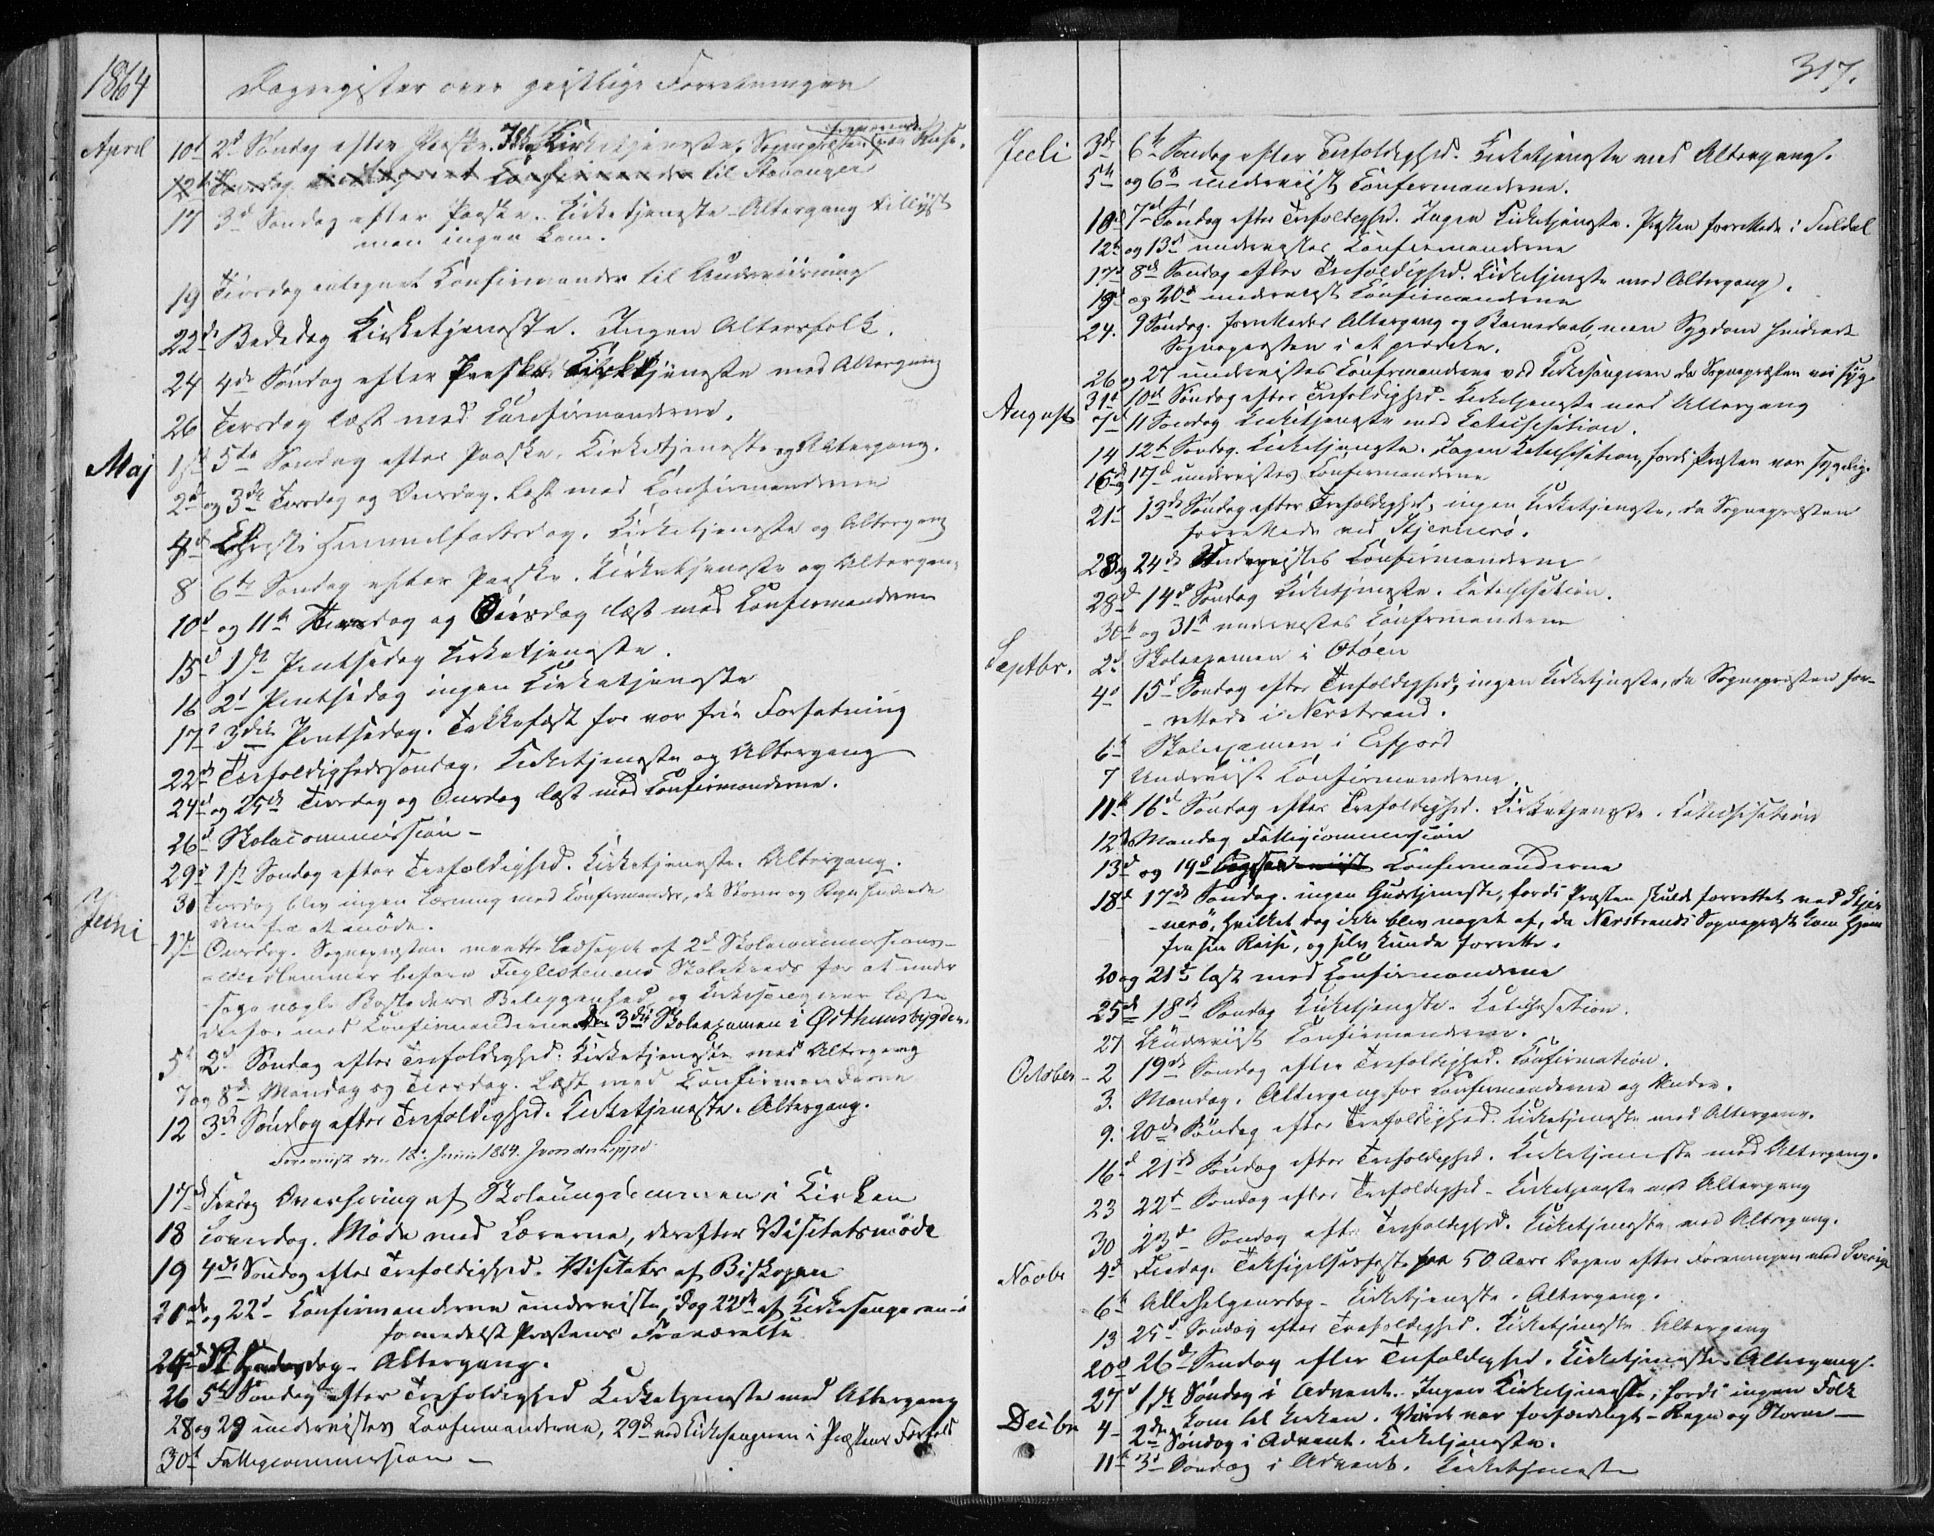 1864
Dagregister over geistlige Forretninger
April 10d 2d Søndag efter Paaske. Kirketjeneste. Sognepræsten Reise.
12t Tirsdag Confirmander til Stavanger
17 3d Søndag efter Paaske. Kirketjeneste. Altergang tillyst
men ingen kom.
19 Tirsdag antegnet Confirmander til Underviisning
22de Bededag Kirketjeneste. Ingen Altersfolk.
24 4de Søndag efter Paaske Kirketjeneste med Altergang
26 Tirsdag læst med Confirmanderne.
Maj 1ste 5te Søndag efter Paaske. Kirketjeneste og Altergang.
2d og 3de Tirsdag og Onsdag. læst med Confirmanderne
4d Christi Himmelfartsdag. Kirketjeneste og Altergang
8 6te Søndag efter Paaske. Kirketjeneste og Altergang
10d og 11te Tirsdag og Onsdag læst med Confirmanderne
15d 1ste Pintsedag Kirketjeneste.
16 2d Pintsedag ingen Kirketjeneste
17d 3die Pintsedag. Takkefest for vor frie Forfatning
22de Trefoldighedssøndag. Kirketjeneste og Altergang
24d og 25de Tirsdag og Onsdag læst med Confirmanderne.
26d Skolecommission –
29d 1ste Søndag efter Trefoldighed. Kirketjeneste. Altergang.
30 Tirsdag blev ingen Læsning med Confirmander, da Storm og Regn hindrede
dem fra at møde.
Juni 1ste Onsdag. Sognepræsten maatte ledsaget af 2d Skolecommissions-
medlemmer befare Fuglesteinens Skolekreds for at under
søge nogle Bosteders Beliggenhed, og Kirkesangeren læste
derfor med Confirmanderne. Den 3die Skoleexamen i Østhunsbygden.
5t 2d Søndag efter Trefoldighed. Kirketjeneste med Altergang
7 og 8d Mandag og Tirsdag. Læst med Confirmanderne
12 3de Søndag efter Trefoldighed. Kirketjeneste. Altergang.
Foreviist den 18d Juni 1864. J von der Lippe
17d Fredag Overhøring af Skoleungdommen i Kirken
18 Løverdag. Møde med Lærerne, derefter Visitatsmøde
19 4de Søndag efter Trefoldighed. Visitats af Biskopen
21de og 22d Confirmanderne undervistes, dog 22de af Kirkesangeren
formedelst Præstens Fraværelse
24d St dag – Altergang.
26 5te Søndag efter Trefoldighed Kirketjeneste med Altergang
28 og 29 undervistes Confirmanderne, 29de ved Kirkesangeren i Præstens Forfald
30t Fattigcommission –
317.
Juli 3de 6te Søndag efter Trefoldighed. Kirketjeneste med Altergang.
5te og 6te underviist Confirmanderne.
10d 7d Søndag efter Trefoldighed. Ingen Kirketjeneste. Præsten forrettede i Suldal
12te og 13d undervistes Confirmanderne
17d 8de Søndag efter Trefoldighed. Kirketjeneste med Altergang.
19d og 20d undervist Confirmanderne
24. 9 Søndag. forrettedes Altergang og Barnedaab, men Sygdom hindrede
Sognepræsten i at prædike.
26 og 27 undervistes Confirmanderne ved Kirkesangeren da Sognepræsten var syg
31d 10de Søndag efter Trefoldighed. Kirketjeneste med Altergang
August 7d 11 Søndag Kirketjeneste med Catechisation.
14 12te Søndag. Kirketjeneste. Ingen Catechisation, fordi Præsten var sygelig.
16d og 17d undervistes Confirmanderne
21d 13de Søndag efter Trefoldighed, ingen Kirketjeneste, da Sognepræsten
forrettede ved Stjernerø.
23 og 24de Undervistes Confirmanderne
28d 14d Søndag Kirketjeneste. Catechisation.
30te og 31te undervistes Confirmanderne
Septbr. 2d Skoleexamen i Otøen
4d 15d Søndag efter Trefoldighed, ingen Kirketjeneste, da Sognepræsten for-
- rettede i Nerstrand.
6te Skoleexamen i Erfjord
7 Underviist Confirmanderne.
11te 16d Søndag efter Trefoldighed. Kirketjeneste. Catechisation
12d Mandag Fattigcommission
13d og 19d Confirmanderne
18d 17de Søndag. ingen Gudstjeneste, fordi Præsten skulde forrettet ved Stjer
- nerø, hvilket dog ikke blev noget af, da Nerstrands Sognepræst kom hjem
fra sin Reise, og selv kunde forrette.
20 og 21de læst med Confirmanderne
25de 18de Søndag Kirketjeneste. Catechisation.
27 Underviist Confirmanderne.
October – 2 19de Søndag efter Trefoldighed. Confirmation.
3. Mandag. Altergang for Confirmanderne og Andre.
9. 20de Søndag efter Trefoldighed. Kirketjeneste med Altergang.
16d 21de Søndag efter Trefoldighed. Kirketjeneste med Altergang.
23 22d Søndag efter Trefoldighed – Kirketjeneste med Altergang
30 23d Søndag efter Trefoldighed. Kirketjeneste med Altergang.
Novbr 4d Fredag. Taksigelsesfest paa 50 Aars Dagen efter Foreningen med Sverig
6te Allehelgensdag – Kirketjeneste. Altergang.
13 25d Søndag efter Trefoldighed. Kirketjeneste Altergang
20d 26de Søndag efter Trefoldighed. Kirketjeneste. Altergang.
27d 1ste Søndag i Advent. Ingen Kirketjeneste, fordi ingen Folk
kom til Kirken. Veiret var forfærdeligt – Regn og Storm –
Decbr 4 – 2den Søndag i Advent. Kirketjeneste.
11te 3d Søndag i Advent. Kirketjeneste